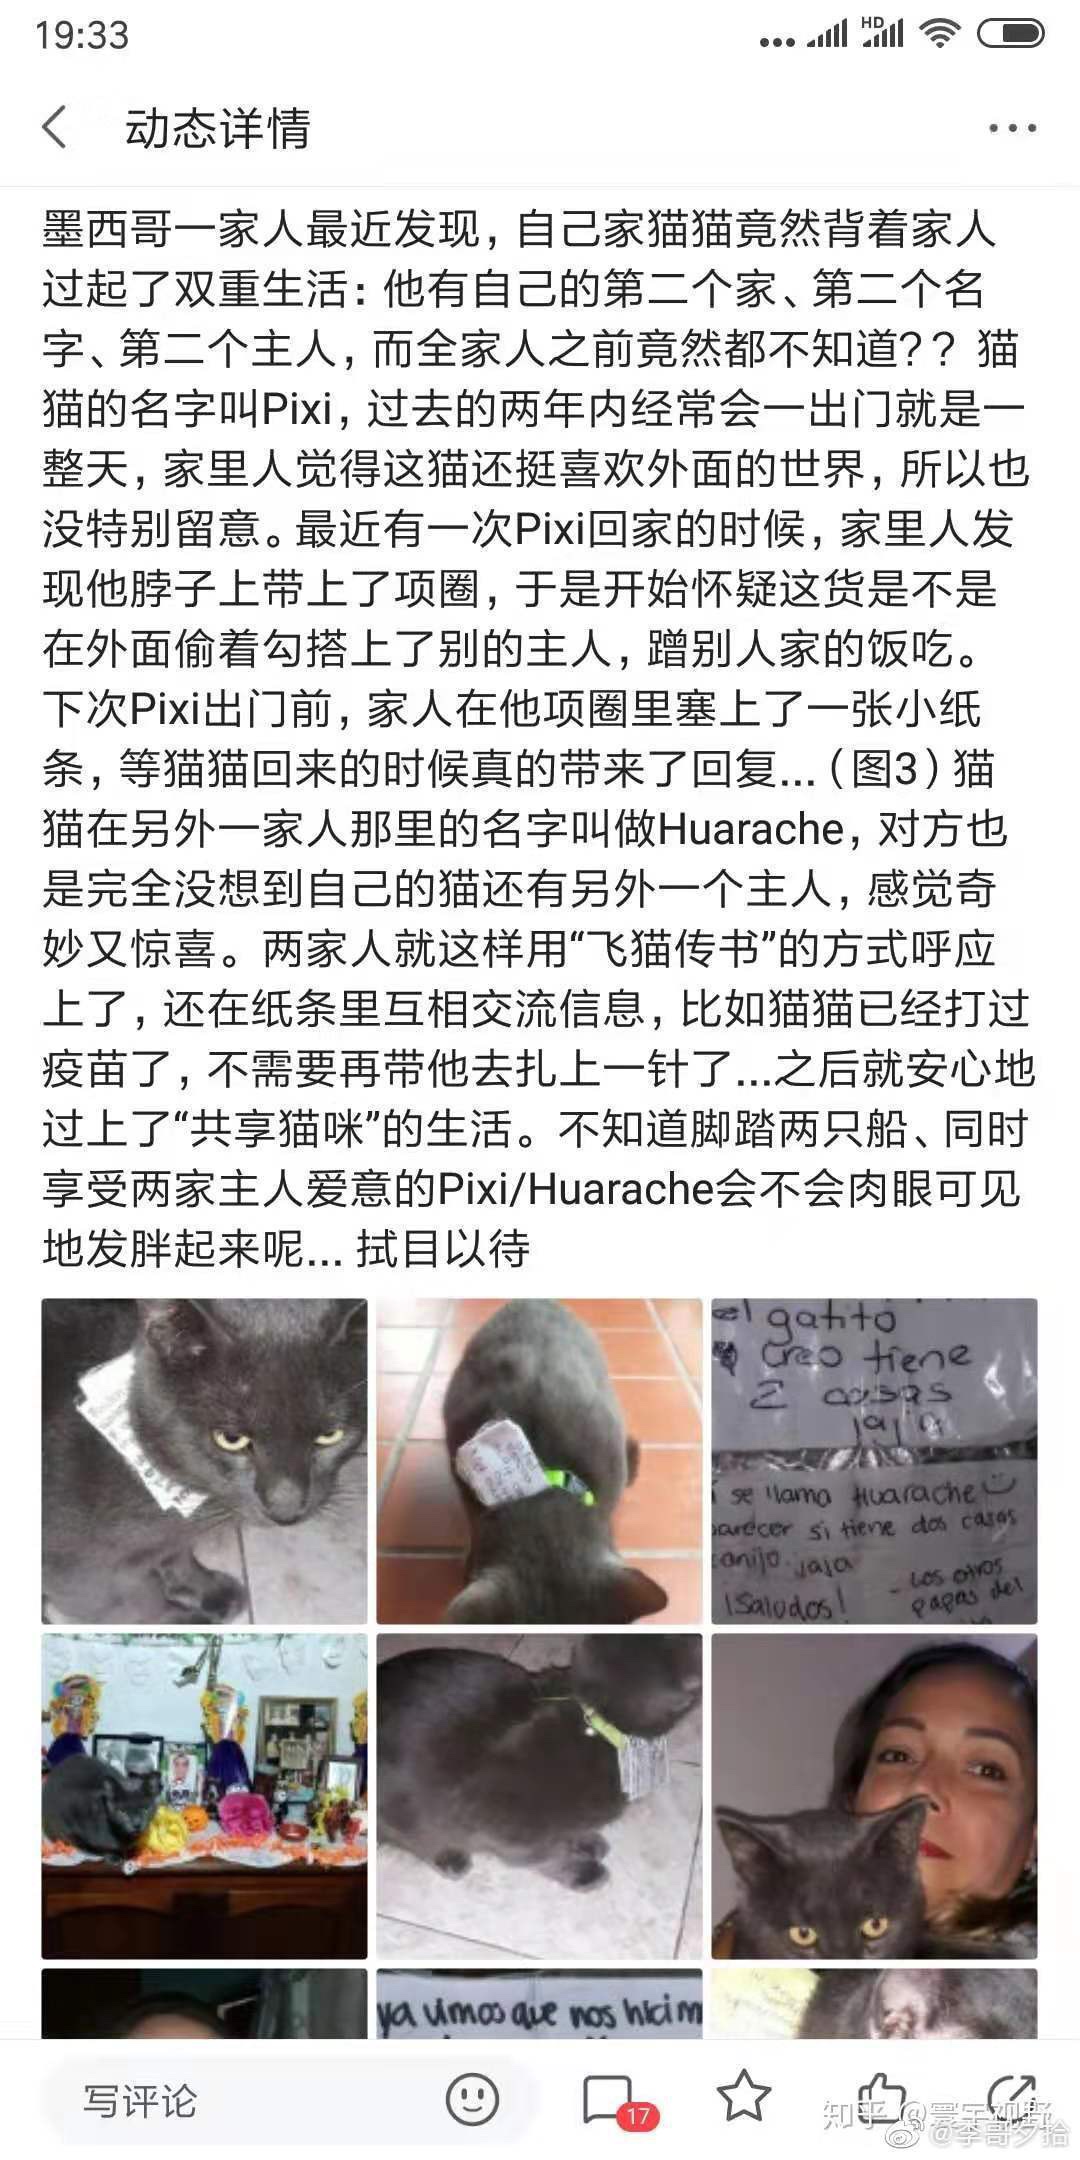 19:33
HD
动态详情
墨西哥一家人最近发现，自己家猫猫竟然背着家人
过起了双重生活：他有自己的第二个家、第二个名
字、第二个主人，而全家人之前竟然都不知道？？猫
猫的名字叫Pixi，过去的两年内经常会一出门就是一
整天，家里人觉得这猫还挺喜欢外面的世界，所以也
没特别留意。最近有一次Pixi回家的时候，家里人发
现他脖子上带上了项圈，于是开始怀疑这货是不是
在外面偷着勾搭上了别的主人，蹭别人家的饭吃。
下次Pixi出门前，家人在他项圈里塞上了一张小纸
条，等猫猫回来的时候真的带来了回复...（图3）猫
猫在另外一家人那里的名字叫做Huarache，对方也
是完全没想到自己的猫还有另外一个主人，感觉奇
妙又惊喜。两家人就这样用“飞猫传书”的方式呼应
上了，还在纸条里互相交流信息，比如猫猫已经打过
疫苗了，不需要再带他去扎上一针了...之后就安心地
过上了“共享猫咪”的生活。不知道脚踏两只船、同时
享受两家主人爱意的Pixi/Huarache会不会肉眼可见
地发胖起来呢... 拭目以待
el gatito
creo tiene
2 casas
jaja
se llama Huarache
parecer si tiene dos casas
canijo. jaja
¡Saludos!
- Los otros
papas del
ya vimos que nos hicim
写评论
17
知乎 @寰宇视野
@李哥夕拾